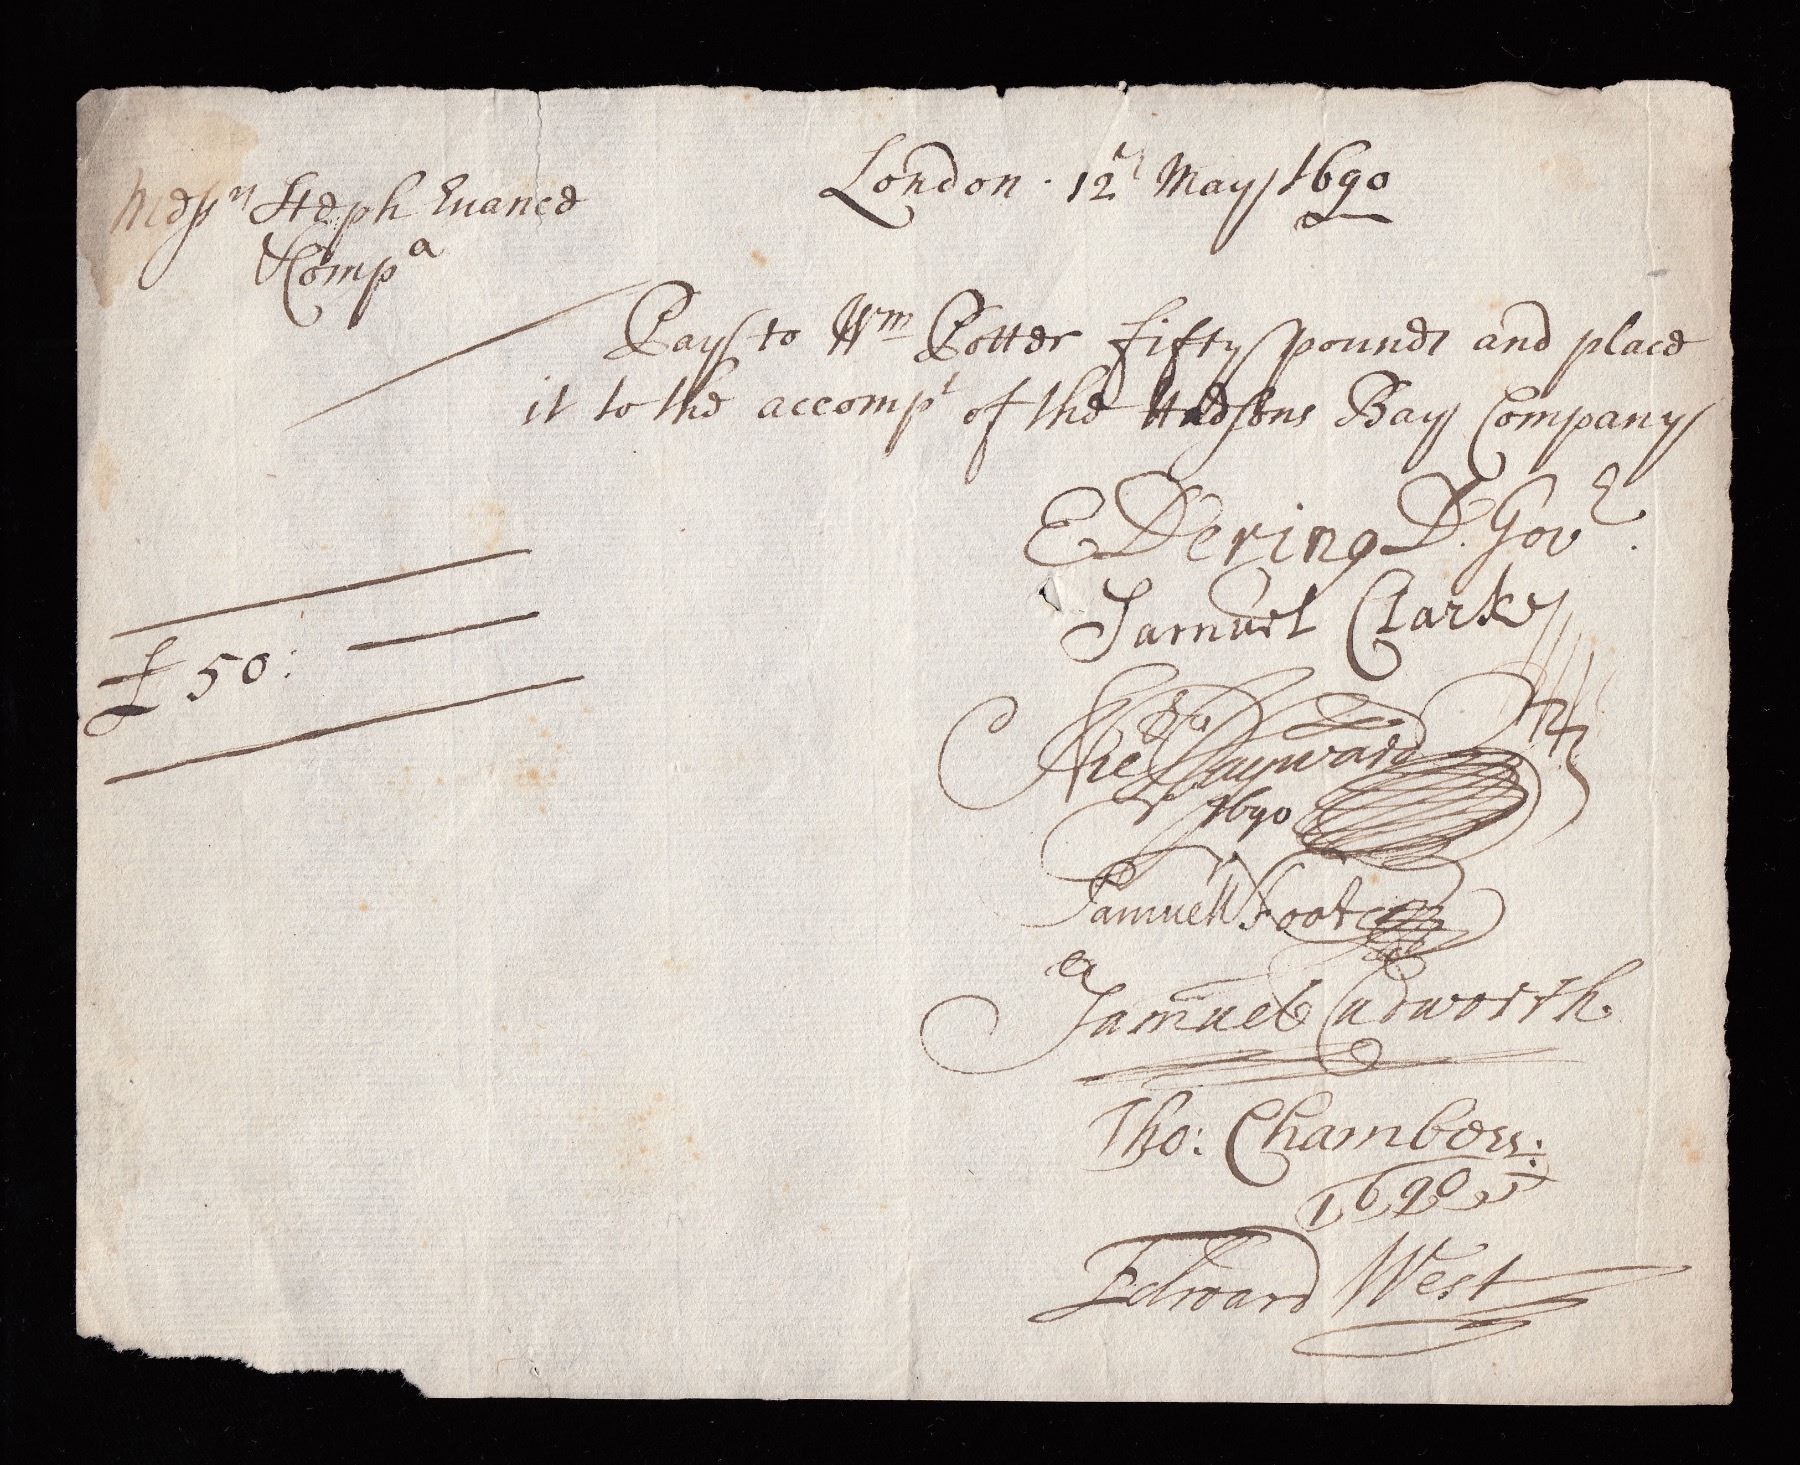 London · 12th May 1690
Messrs Steph Evance
& Compa
Pay to Wm Potter fifty pounds and place
it to the accompt of the Hudsons Bay Company
E Dering D. Govr.
Samuel Clarke
£ 50:
Nic Hayward
1690
Samuell Foote
Samuel Cudworth.
Tho: Chambers:
1690
Edward West